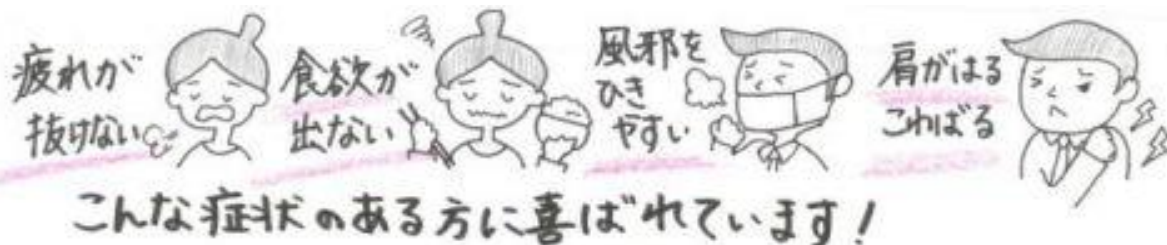 疲れが
抜けない
食欲が
出ない
風邪を
ひき
やすい
肩がはる
こわばる
こんな症状のある方に喜ばれています！